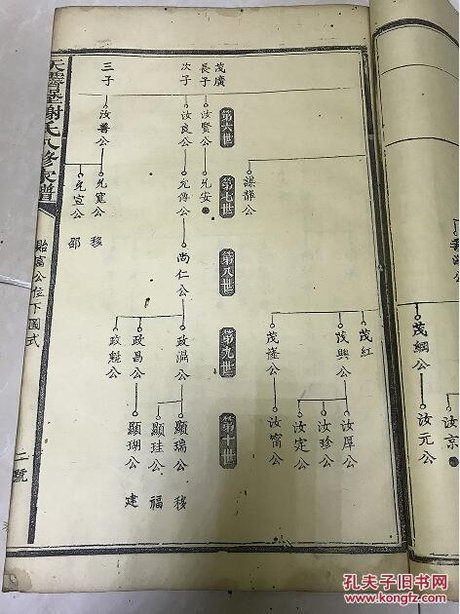 茂廣
長子
次子
三子
第六世
汝賢公
汝良公
汝善公
第七世
諶靜公
允安
允傳公
允寬公
允宣公
移
邵
第八世
尚仁公
第九世
茂紅
茂興公
茂隆公
政溫公
政昌公
政魁公
茂綱公
第十世
汝厚公
汝珍公
汝定公
汝甯公
顯瑞公
顯珪公
顯瑚公
移
福
建
汝元公
汝京
謝氏八修家譜
貽富公位下圖式
二號
孔夫子旧书网
www.kongfz.com